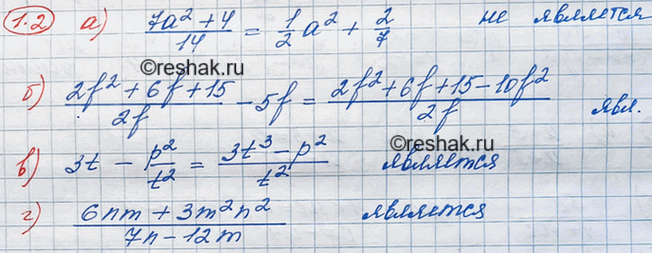 1.2 а) (7a² + 4)/14 = 1/2 a² + 2/7 не является
©reshak.ru
б) (2f² + 6f + 15)/2f - 5f = (2f² + 6f + 15 - 10f²)/2f явл.
©reshak.ru
в) 3t - p²/t² = (3t³ - p²)/t² является
©reshak.ru
г) (6nm + 3m²n²)/(7n - 12m) является